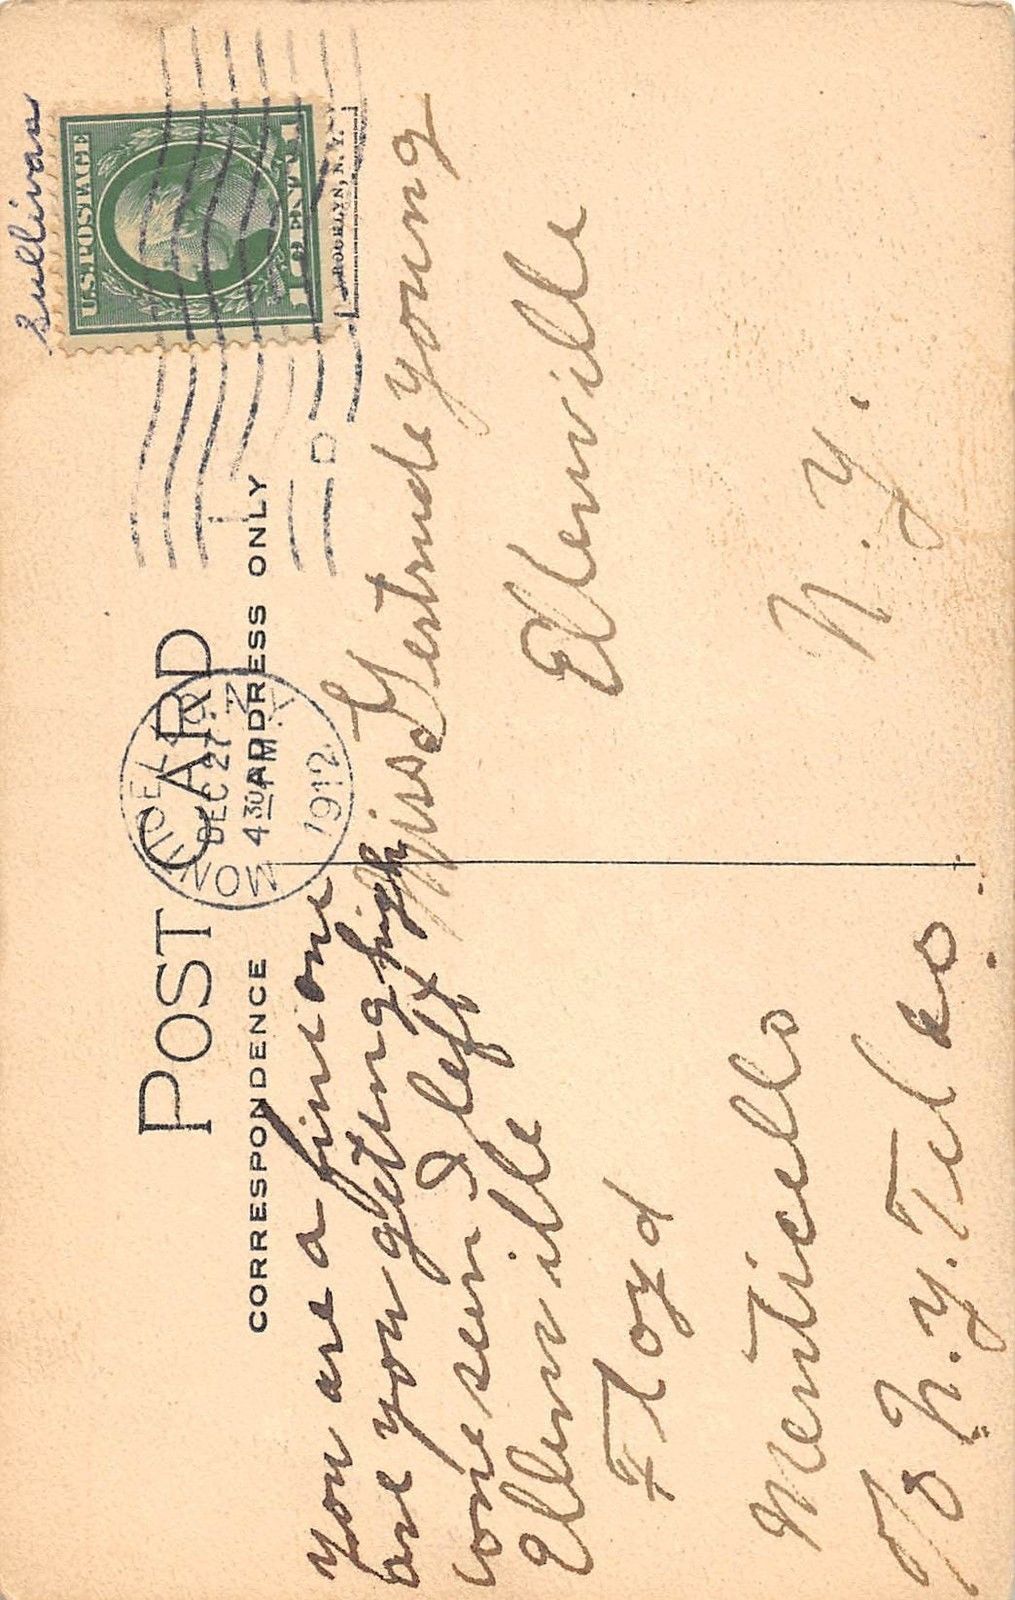 Sullivan
U.S. POSTAGE
1 CENT 1
BROOKLYN, N. Y.
POST CARD
CORRESPONDENCE
ADDRESS ONLY
MONTICELLO
DEC 27
4 30 AM
1912
N.Y.
D
you are a fine one
are you getting high
one seen I left
Ellenville
Floyd
Menticello
N.Y.
c/o N.Y. Tel Co
Miss Gertrude young
Ellenville
N. Y.